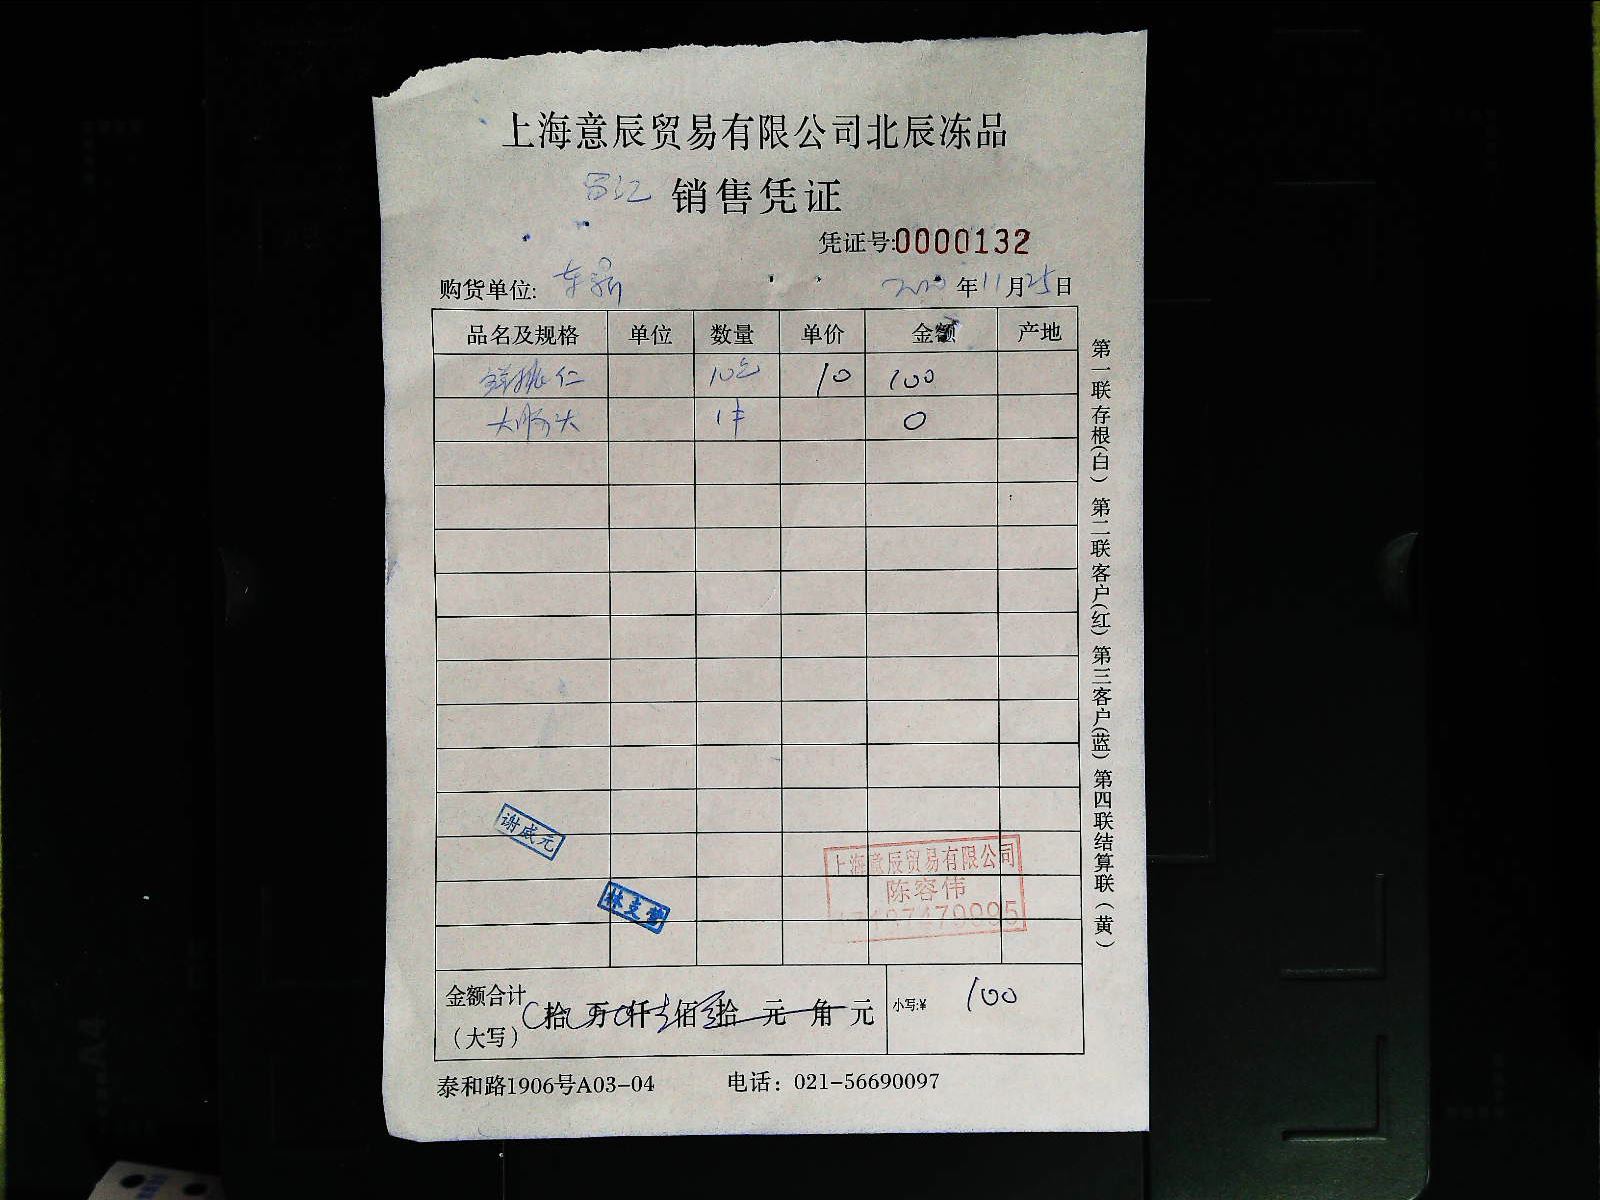 上海意辰贸易有限公司北辰冻品
销售凭证
凭证号:0000132
购货单位: 年11月25日
品名及规格 单位 数量 单价 金额 产地
桃仁 10包 10 100
大肠头 1件 0
谢成元
林支营
上海意辰贸易有限公司
陈容伟
金额合计(大写) 拾 万 仟 佰 拾 元 角 元 小写:¥ 100
泰和路1906号A03-04 电话：021-56690097
第一联存根(白) 第二联客户(红) 第三客户(蓝) 第四联结算联(黄)